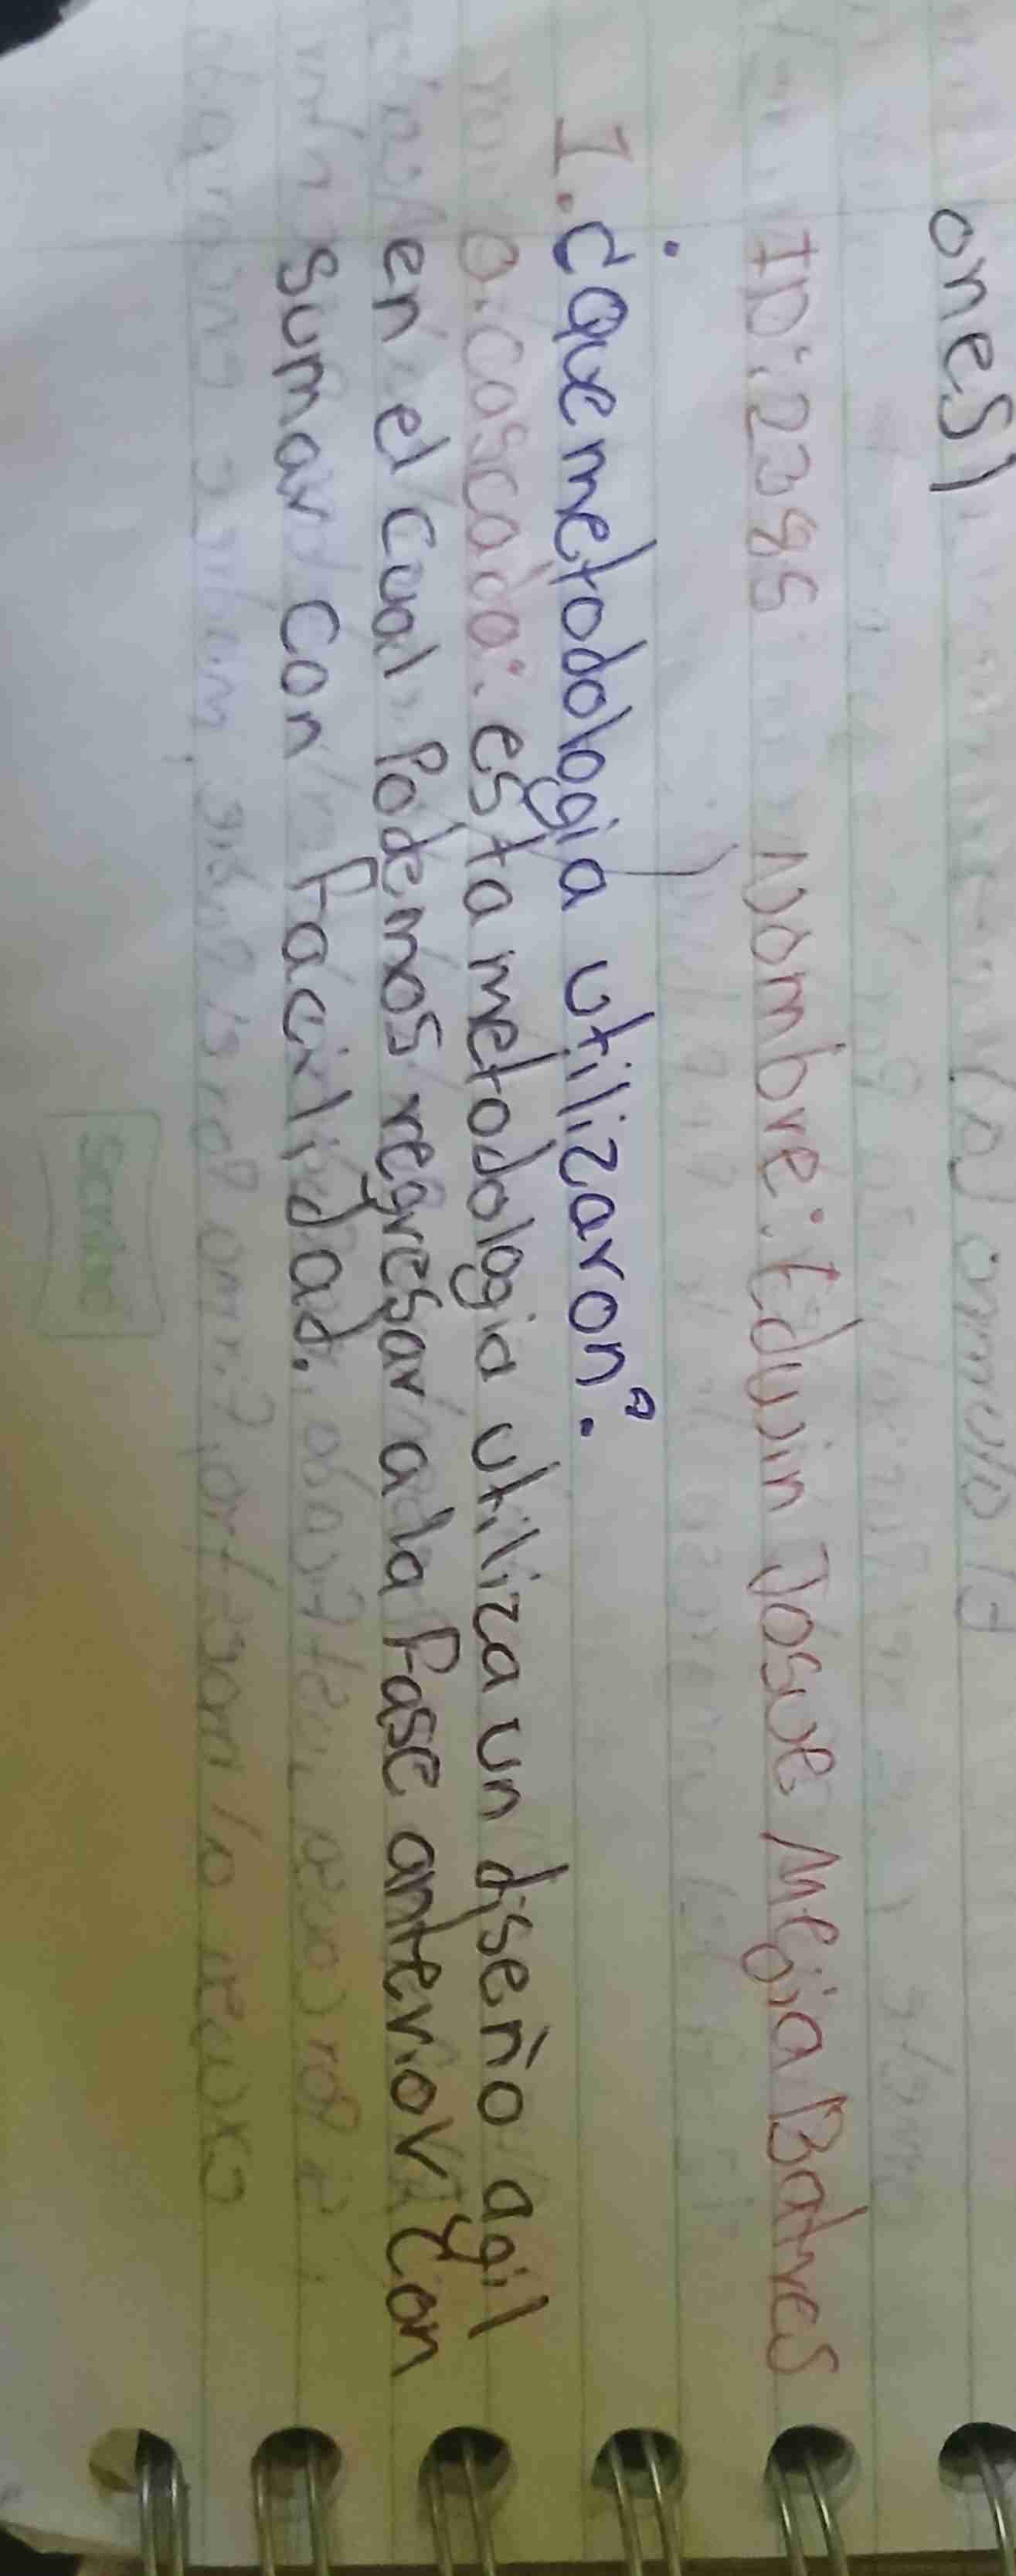 ones)
ID: 2385 Nombre: Eduin Josue Mejia Batres
1. ¿Que metodologia utilizaron?
O. Cascada: esta metodologia utiliza un diseño agil
en el cual Podemos regresar a la Fase anterior con
sumar con Facilidad.
Scribe